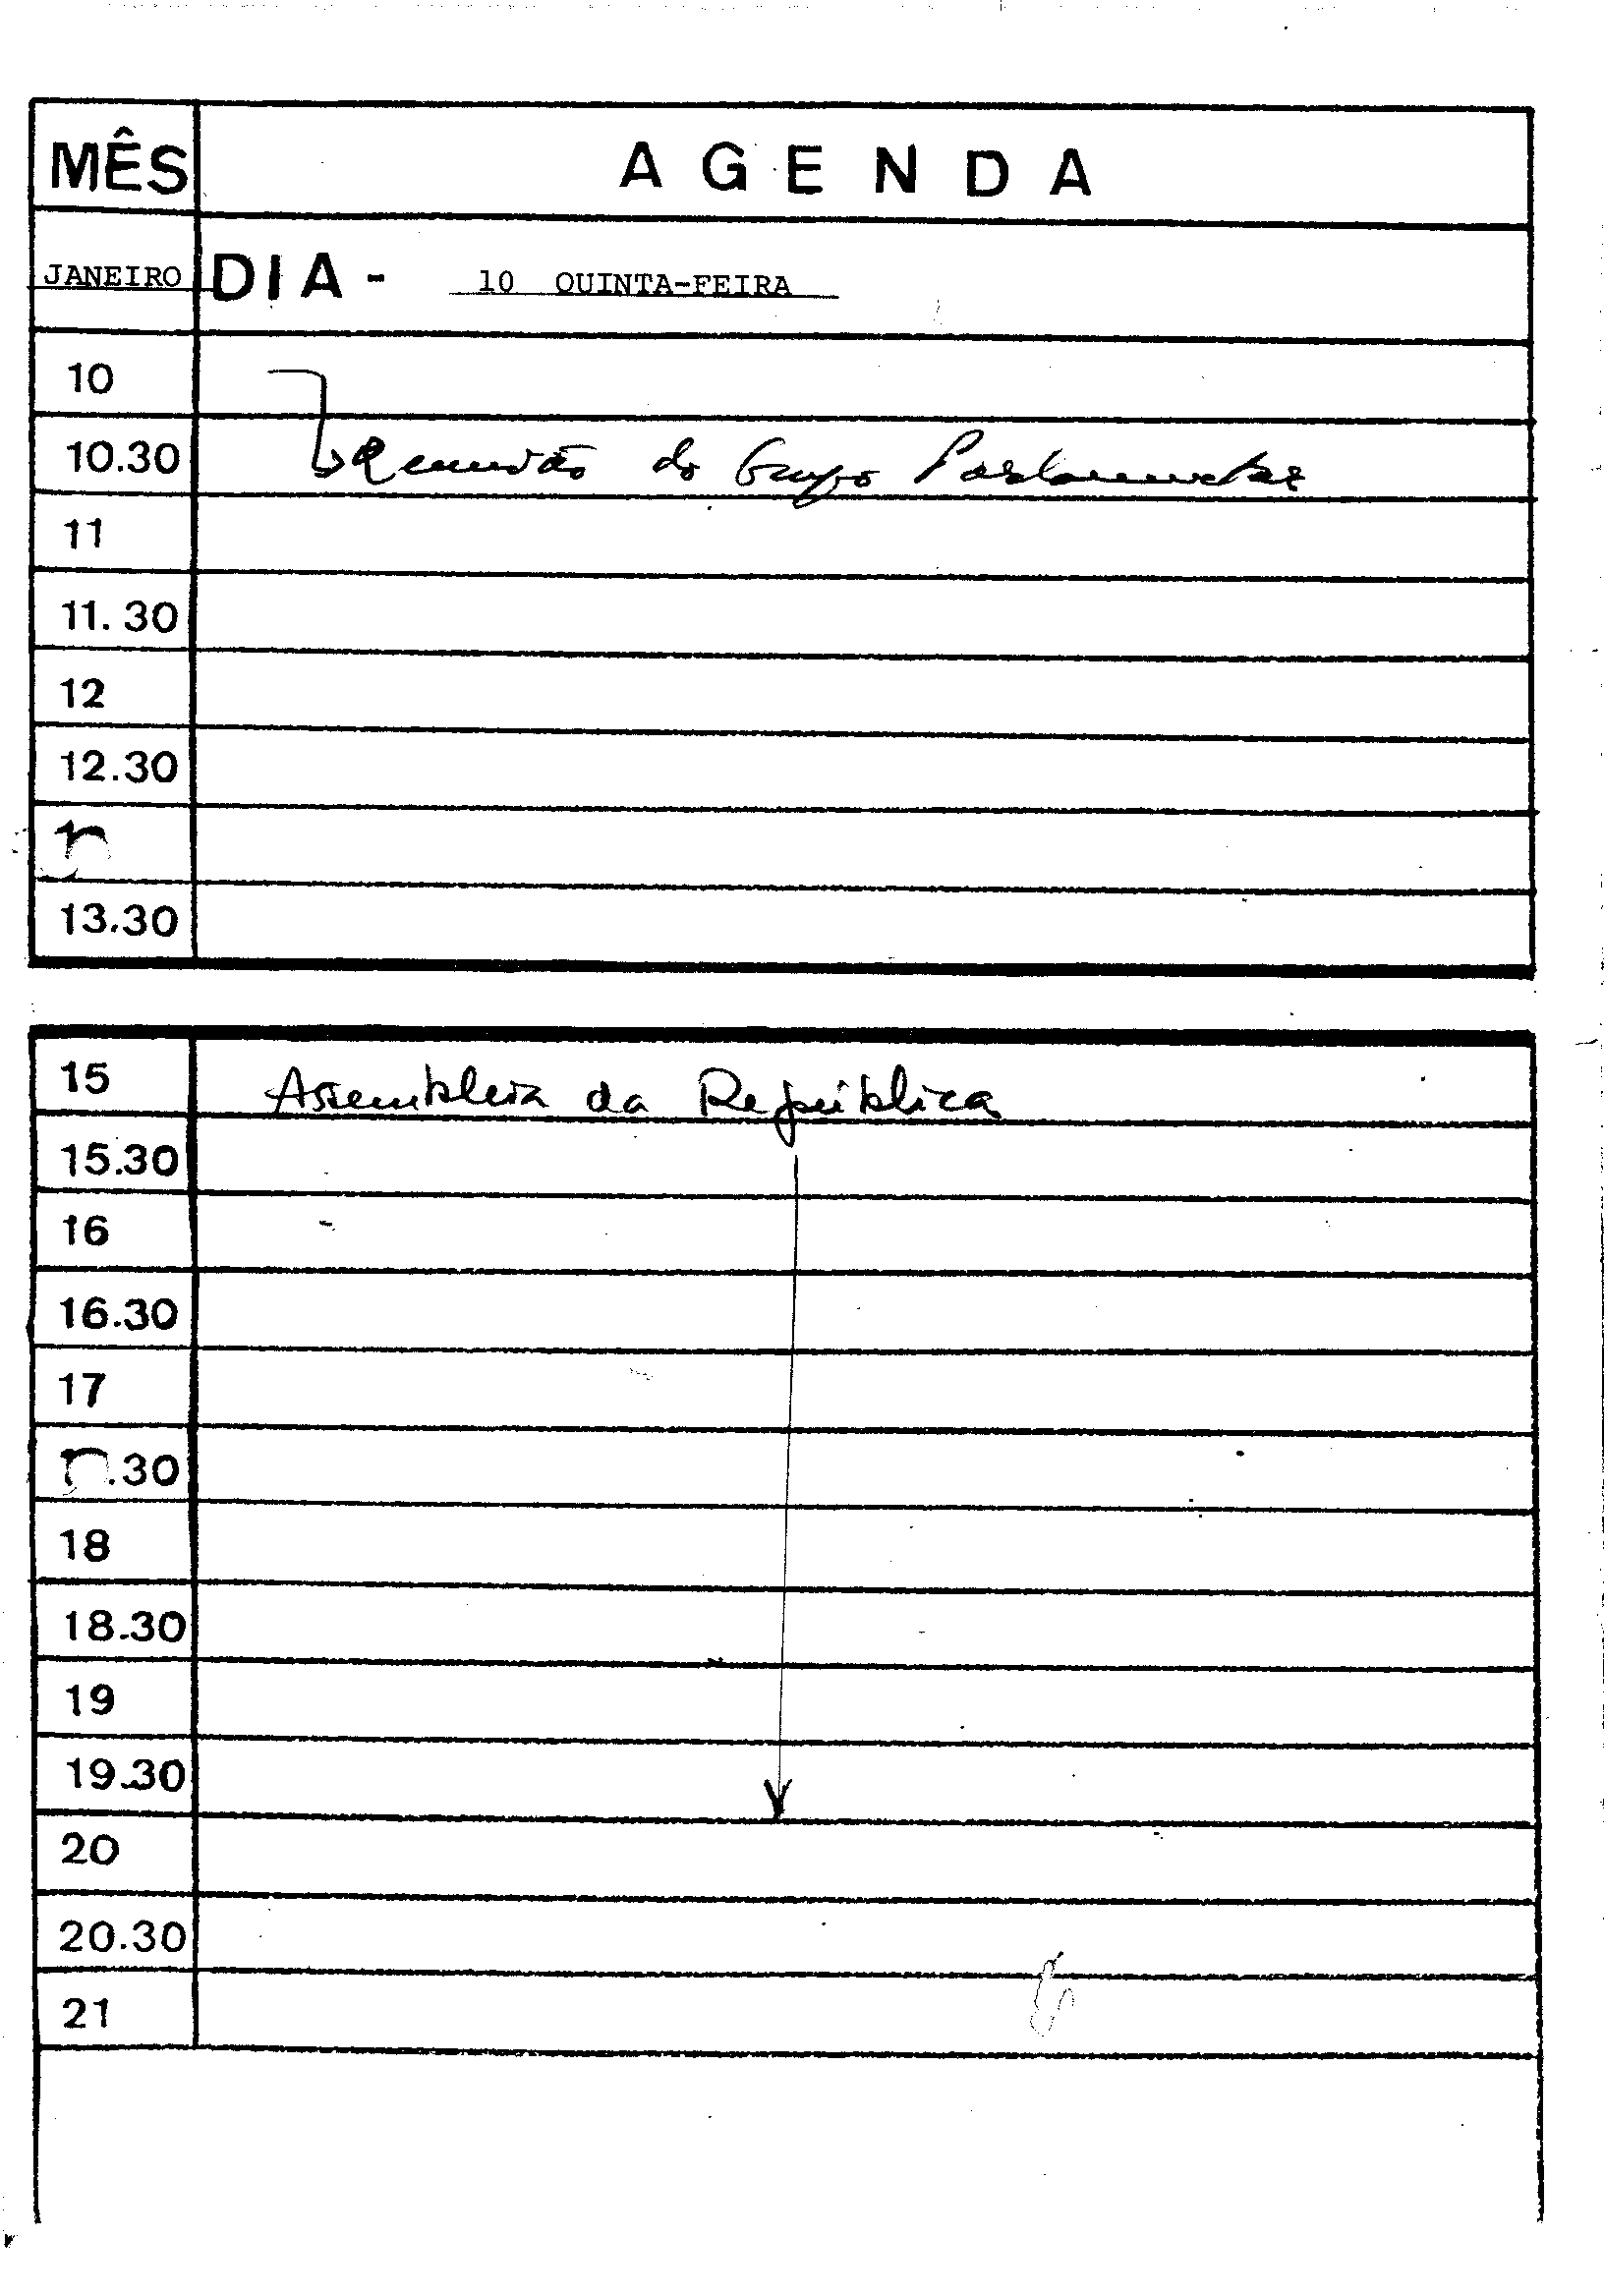 MÊS AGENDA
JANEIRO DIA - 10 QUINTA-FEIRA
10
10.30 Reunião do Grupo Parlamentar
11
11.30
12
12.30
13.30
15 Assembleia da República
15.30
16
16.30
17
.30
18
18.30
19
19.30
20
20.30
21